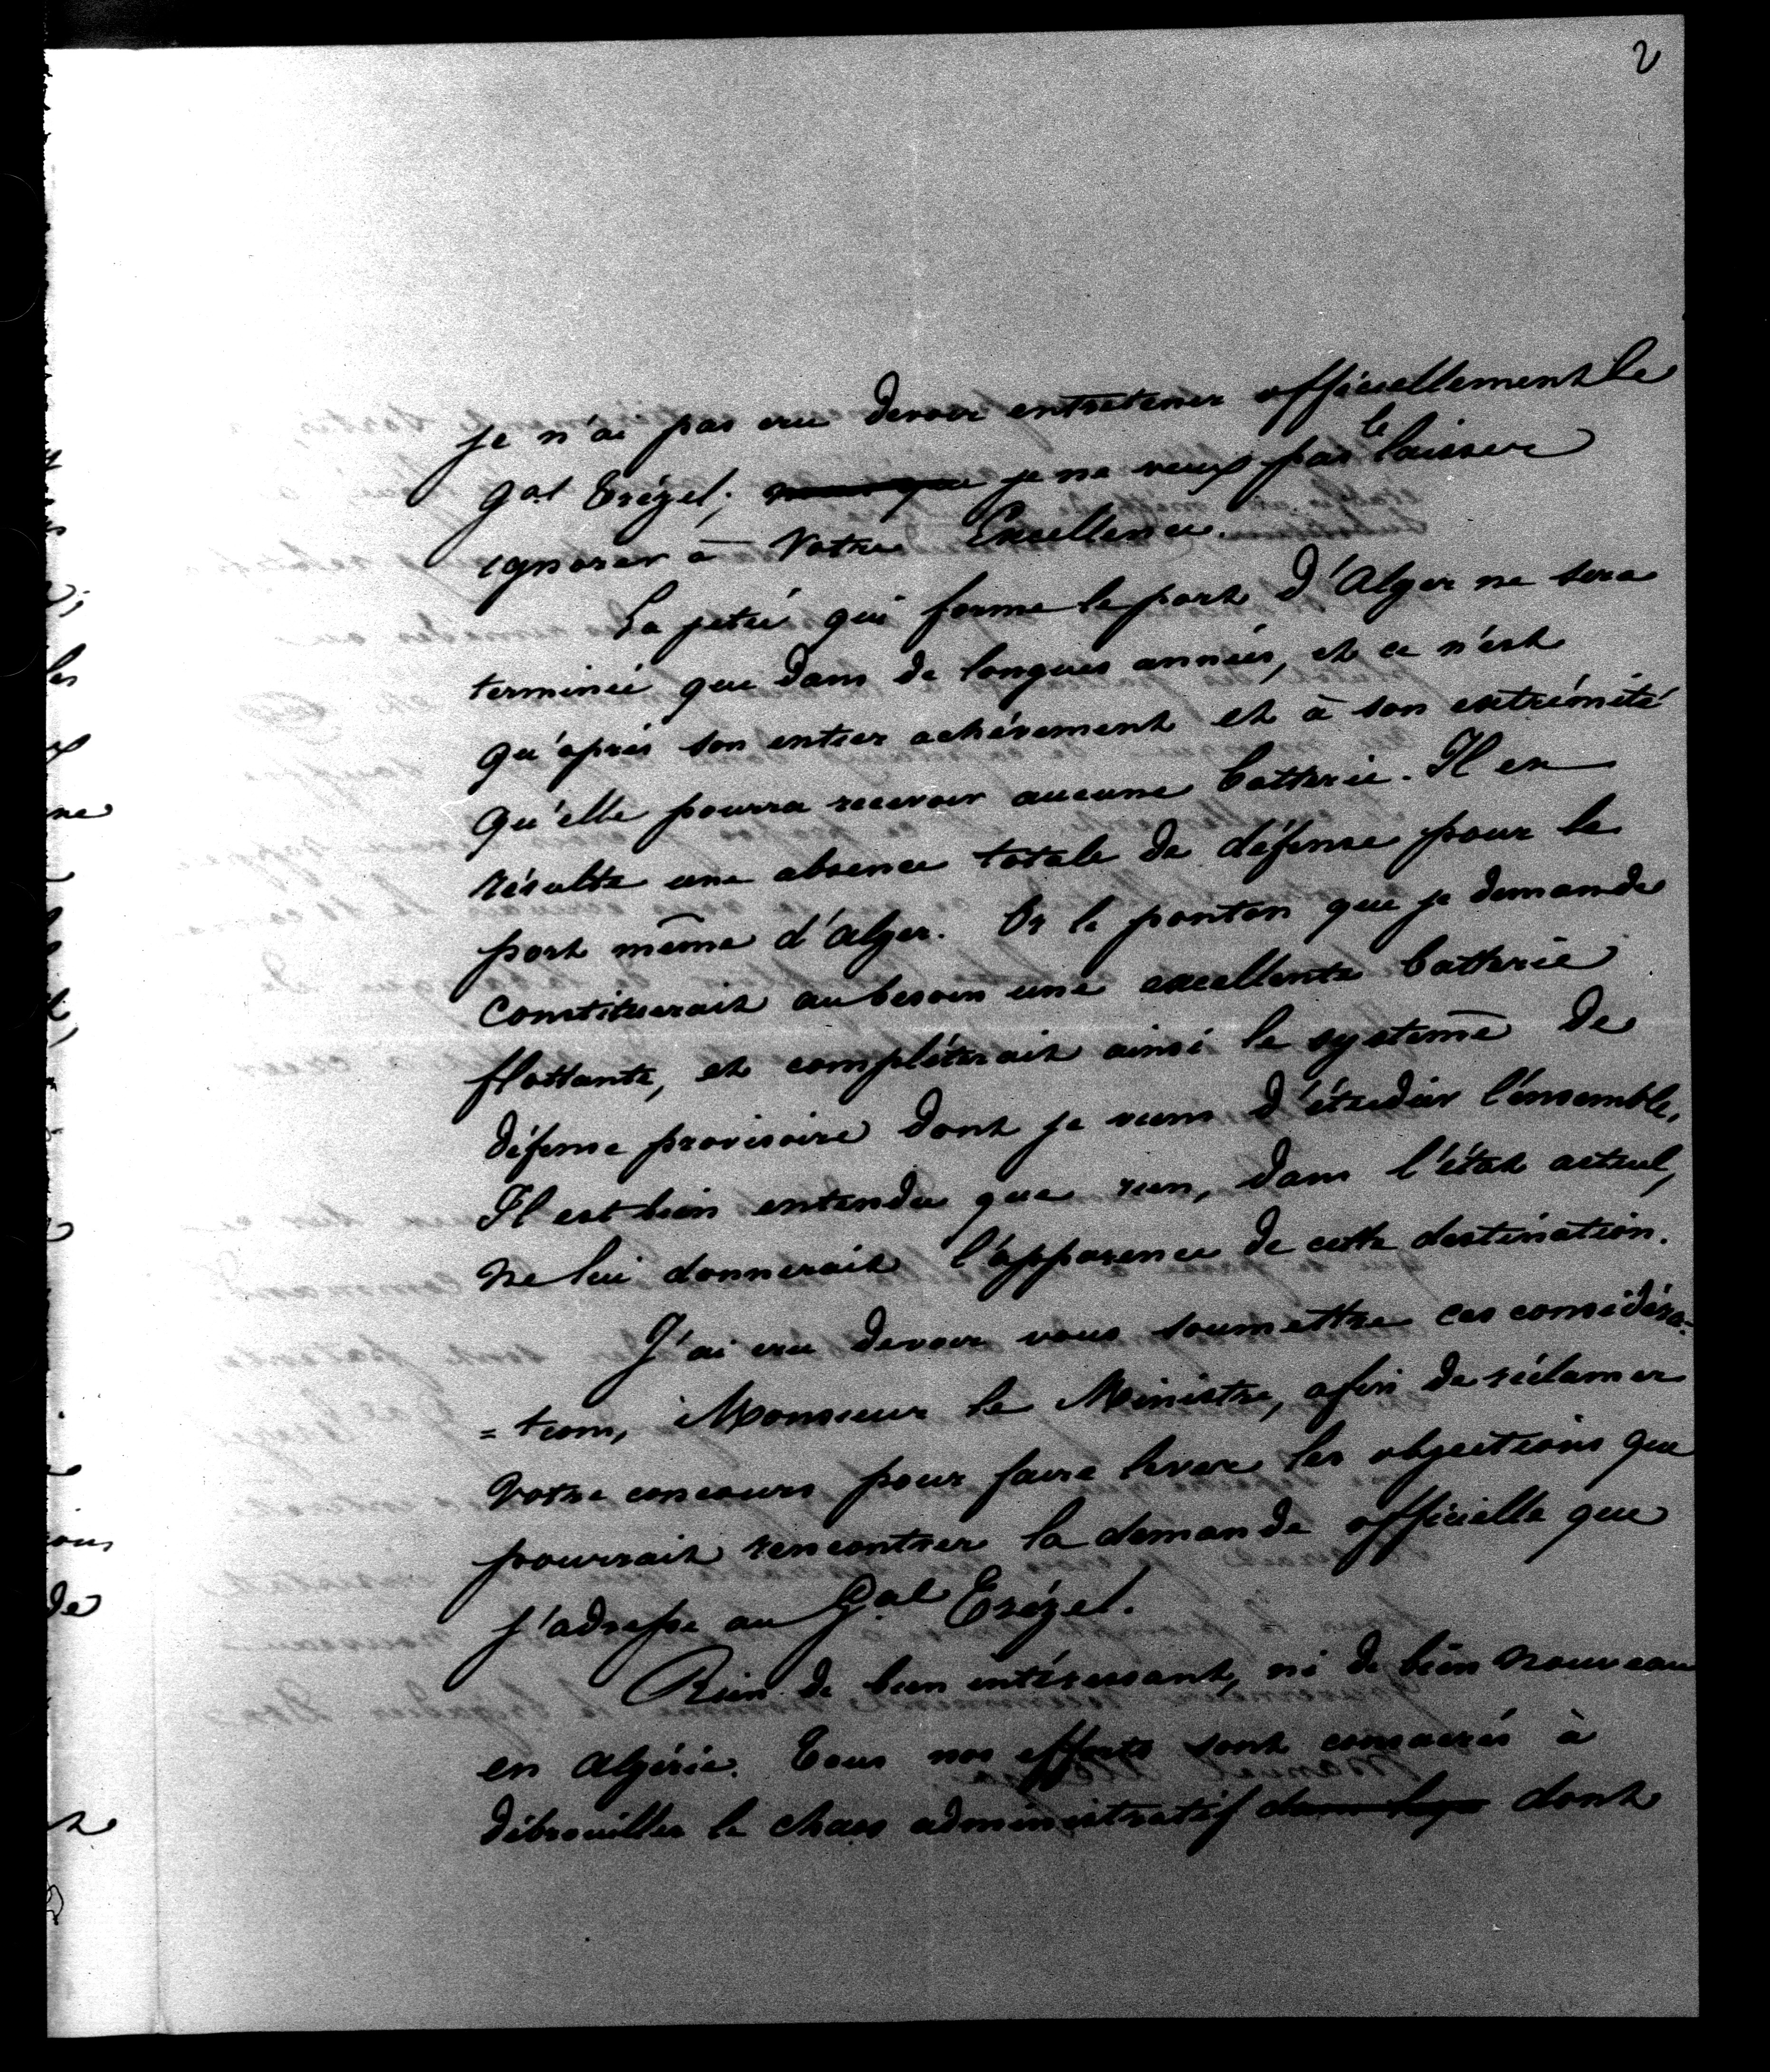 2
je n'ai pas cru devoir entretenir officiellement le
gal Trézel; je ne veux pas le laisser
ignorer à Votre Excellence.
La jetée qui forme le port d'Alger ne sera
terminée que dans de longues années, et ce n'est
qu'après son entier achèvement et à son extrémité
qu'elle pourra recevoir aucune batterie. Il en
résulte une absence totale de défense pour le
port même d'Alger. Or le ponton que je demande
constituerait au besoin une excellente batterie
flottante, et compléterait ainsi le système de
défense provisoire dont je viens d'étudier l'ensemble.
Il est bien entendu que rien, dans l'état actuel,
ne lui donnerait l'apparence de cette destination.
J'ai cru devoir vous soumettre ces considéra=
=tions, Monsieur le Ministre, afin de réclamer
votre concours pour faire lever les objections que
pourrait rencontrer la demande officielle que
j'adresse au Gal Trézel.
Rien de bien intéressant, ni de bien nouveau
en Algérie. Tous nos efforts sont consacrés à
débrouiller le chaos administratif dont